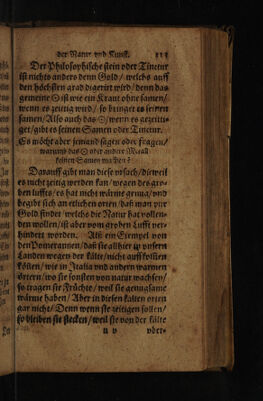 der Natur vnd Kunst.
Der Philosophische stein oder Tinctur
ist nichts anders denn Gold / welchs auff
den höchsten grad digerirt wird / denn das
gemeine ☉ ist wie ein Kraut ohne samen /
wenn es zeitig wird / so kreget es seinen
samen / Also auch das ☉ / wenn es gezeitiget
/ gibt es seinen Samen oder Tinctur.
Es möcht aber jemand sagen oder fragen /
warumb das ☉ oder andere Metall
keinen Samen machen?
Darauff gibt man diese vrsach / dieweil
es nicht zeitig werden kan / wegen des groben
luffts / es hat nicht wärme genug / vnd
begibt sich an etlichen orten / daß man pur
Gold findet / welchs die Natur hat vollenden
wollen / ist aber vom groben Lufft verhindert
worden. Als ein Exempel von
den Pomerantzen / daß sie allhier in vnsern
Landen wegen der kälte / nicht auffkommen
können / wie in Italia vnd andern warmen
örtern / wo sie sonsten von natur wachsen /
so tragen sie Früchte / weil sie gnugsame
wärme haben / Aber in diesen kalten orten
gar nicht / Denn wenn sie zeitigen sollen /
so bleiben sie stecken / weil sie von der kälte
u v